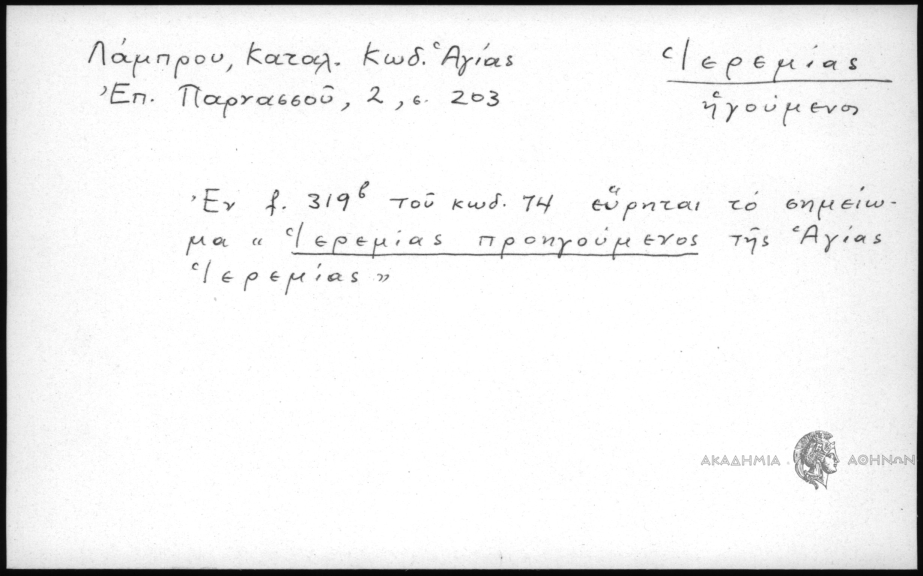 Λάμπρου, Καταλ. Κωδ. Ἁγίας
Ἐπ. Παρνασσοῦ, 2, σ. 203
Ἱερεμίας
ἡγούμενος
Ἐν f. 319β τοῦ κωδ. 74 εὕρηται τό σημείω-
μα « Ἱερεμίας προηγούμενος τῆς Ἁγίας
Ἱερεμίας »
ΑΚΑΔΗΜΙΑ ΑΘΗΝΩΝ